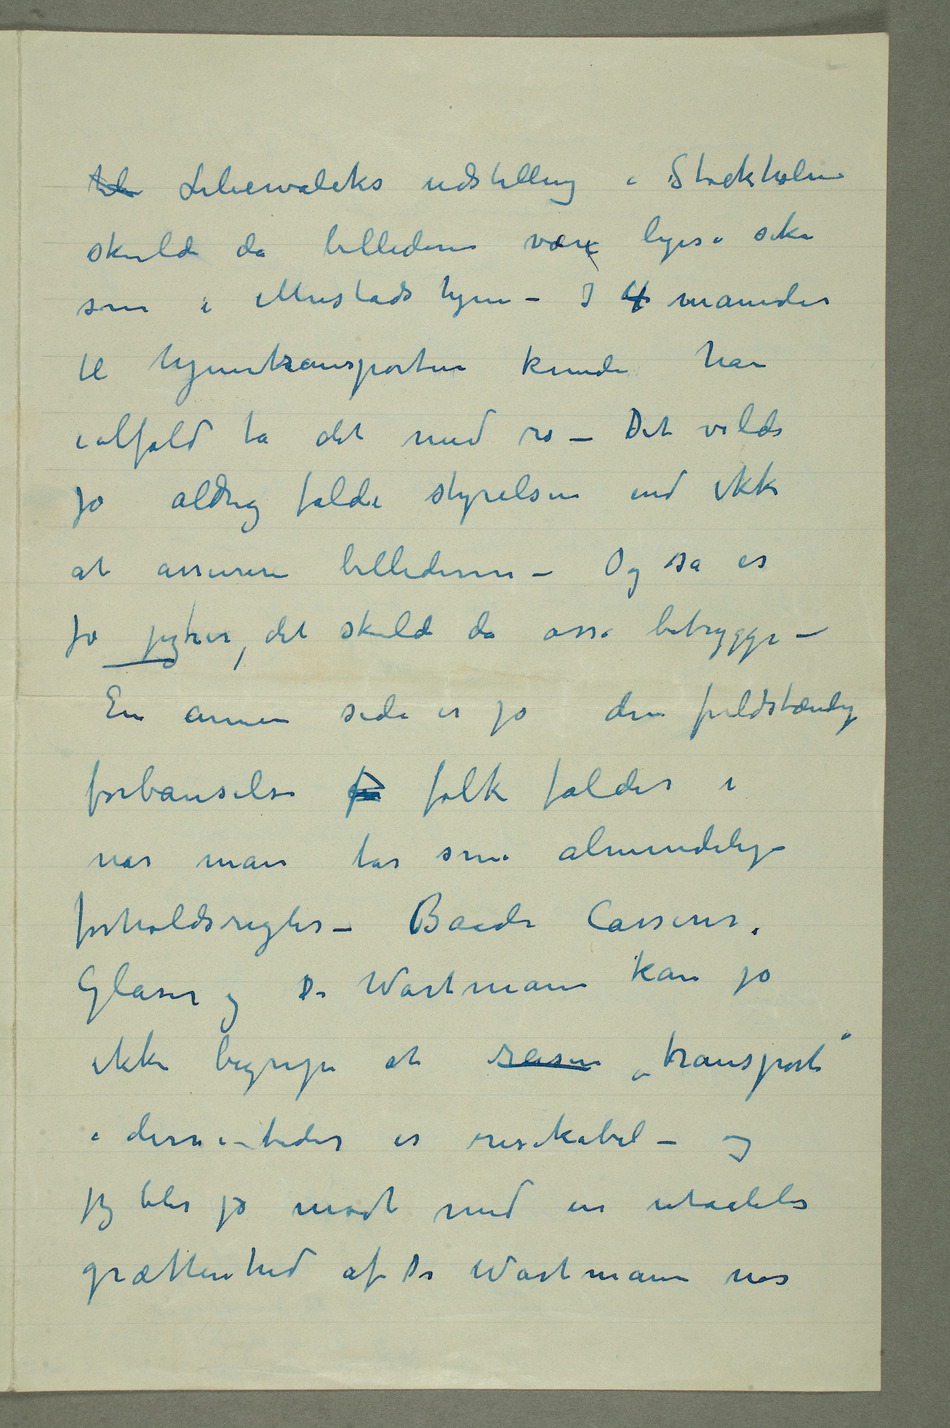 til Liljevalcks udstilling i Stockholm
skulde da billederne være ligeså sikre
som i Mustads hjem – I 4 maneder
til hjemtransporten kunde han
ialfald ta det med ro – Det vilde
jo aldrig falde styrelsen ind ikke
at assurere billederne – Og så er
jo jeg her, det skulde da osså betrygge –
En annen side er jo den fuldstændige
forbauselse folk falder i
når man tar sine almindelige
forholdsregler – Baade Cassirer,
Glaser og Dr Wartmann kan jo
ikke begripe at reisen „transport“
i disse tider er risikabel – og
jeg blev jo mødt med en utaalelig
grættenhed af Dr Wartmann når